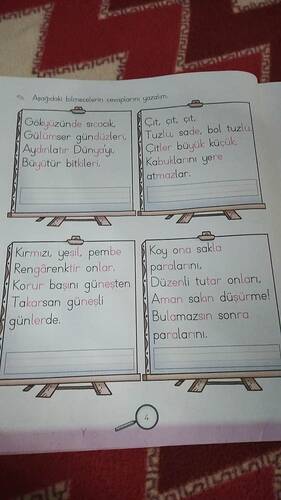 Aşağıdaki bilmecelerin cevaplarını yazalım.
Gökyüzünde sıcacık,
Gülümser gündüzleri,
Aydınlatır Dünya'yı,
Büyütür bitkileri.
Çıt, çıt, çıt,
Tuzlu, sade, bol tuzlu
Çitler büyük küçük,
Kabuklarını yere
atmazlar.
Kırmızı, yeşil, pembe
Rengârenktir onlar,
Korur başını güneşten
Takarsan güneşli
günlerde.
Koy ona sakla
paralarını,
Düzenli tutar onları,
Aman sakın düşürme!
Bulamazsın sonra
paralarını.
4